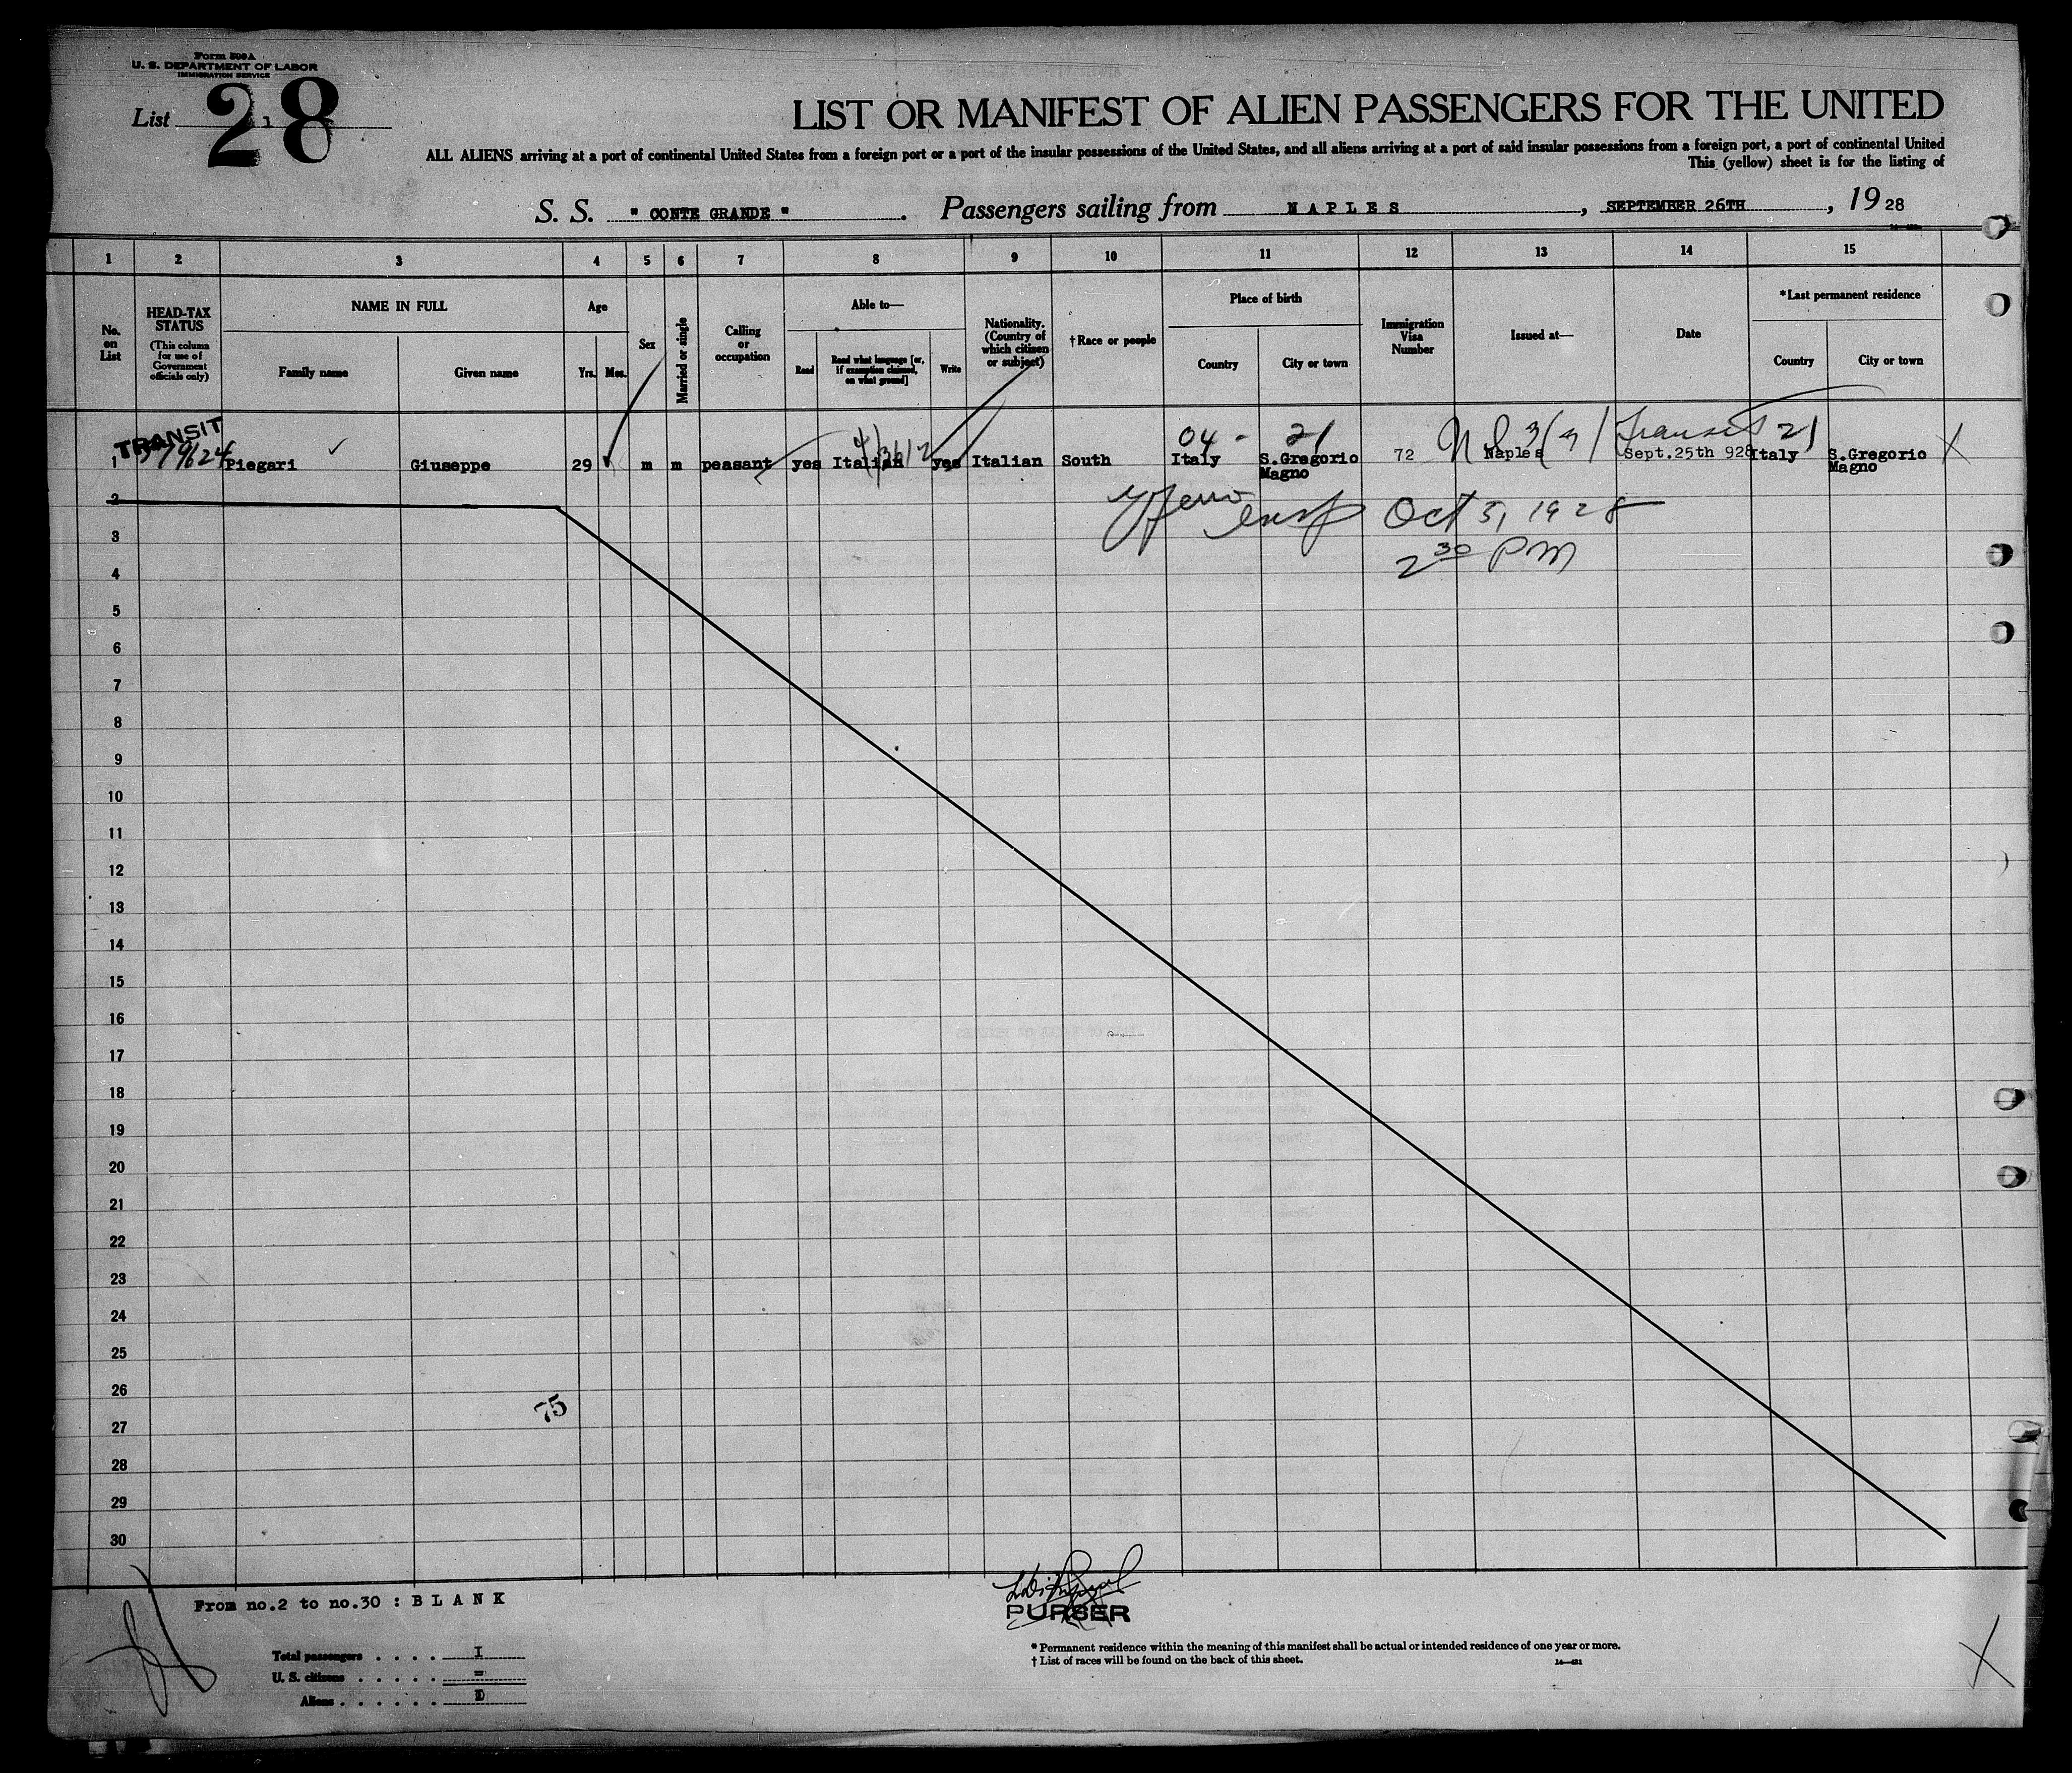 Form 500A
U. S. DEPARTMENT OF LABOR
IMMIGRATION SERVICE
List 1
28
LIST OR MANIFEST OF ALIEN PASSENGERS FOR THE UNITED
ALL ALIENS arriving at a port of continental United States from a foreign port or a port of the insular possessions of the United States, and all aliens arriving at a port of said insular possessions from a foreign port, a port of continental United
This (yellow) sheet is for the listing of
S. S. " CONTE GRANDE " . Passengers sailing from NAPLES , SEPTEMBER 26TH , 19 28
1 2 3 4 5 6 7 8 9 10 11 12 13 14 15
No. on List
HEAD-TAX STATUS
(This column for use of Government officials only)
NAME IN FULL
Family name
Given name
Age
Yrs. Mos.
Sex
Married or single
Calling or occupation
Able to—
Read
Read what language [or, if exemption claimed, on what ground]
Write
Nationality. (Country of which citizen or subject)
†Race or people
Place of birth
Country
City or town
Immigration Visa Number
Issued at—
Date
*Last permanent residence
Country
City or town
TRANSIT
04 - 21
3(3) Transit 21
1 Piegari Giuseppe 29 m m peasant yes Italian yes Italian South Italy S.Gregorio Magno 72 Naples Sept.25th 928 Italy S.Gregorio Magno X
insp Oct 5, 1928
2 30 PM
2
3
4
5
6
7
8
9
10
11
12
13
14
15
16
17
18
19
20
21
22
23
24
25
26
75
27
28
29
30
From no.2 to no.30 : B L A N K
PURSER
Total passengers . . . . I
U. S. citizens . . . . . =
Aliens . . . . . .
* Permanent residence within the meaning of this manifest shall be actual or intended residence of one year or more.
† List of races will be found on the back of this sheet.
X